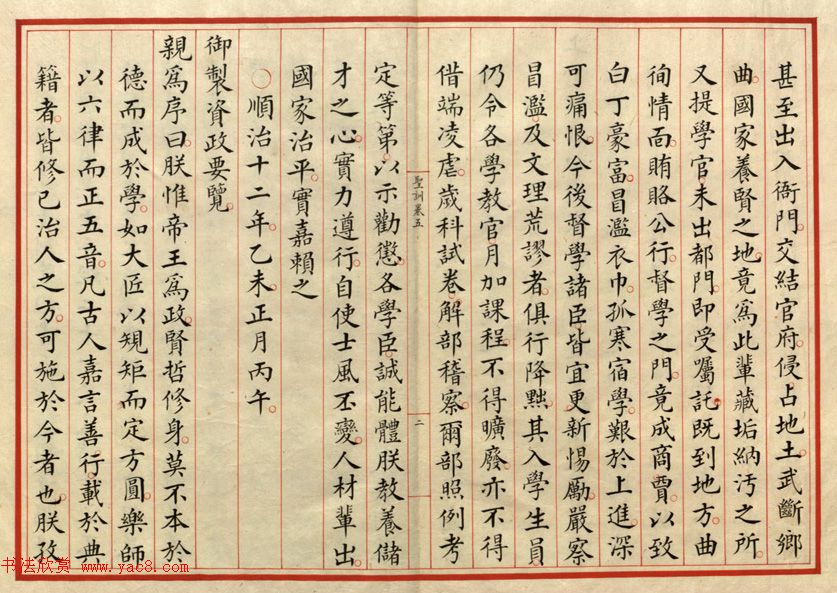 甚至出入衙門交結官府侵占地土武斷鄉
曲。國家養賢之地竟爲此輩藏垢納汚之所。
又提學官未出都門。即受囑託。既到地方。曲
徇情面。賄賂公行。督學之門。竟成商賈。以致
白丁豪富。冒濫衣巾。孤寒宿學。艱於上進。深
可痛恨。今後督學諸臣皆宜更新惕勵。嚴察
冒濫。及文理荒謬者。俱行降黜。其入學生員
仍令各學教官。月加課程。不得曠廢。亦不得
借端凌虐。歲科試卷。解部稽察。爾部照例考
聖訓卷五
二
定等第。以示勸懲。各學臣誠能體朕教養儲
才之心。實力遵行。自使士風丕變。人材輩出。
國家治平。實嘉賴之
○順治十二年乙未。正月丙午。
御製資政要覽。
親爲序曰。朕惟帝王爲政。賢哲修身。莫不本於
德而成於學。如大匠以規矩而定方圓。樂師
以六律而正五音。凡古人嘉言善行。載於典
籍者。皆修已治人之方。可施於今者也。朕孜
书法欣赏 www.yac8.com